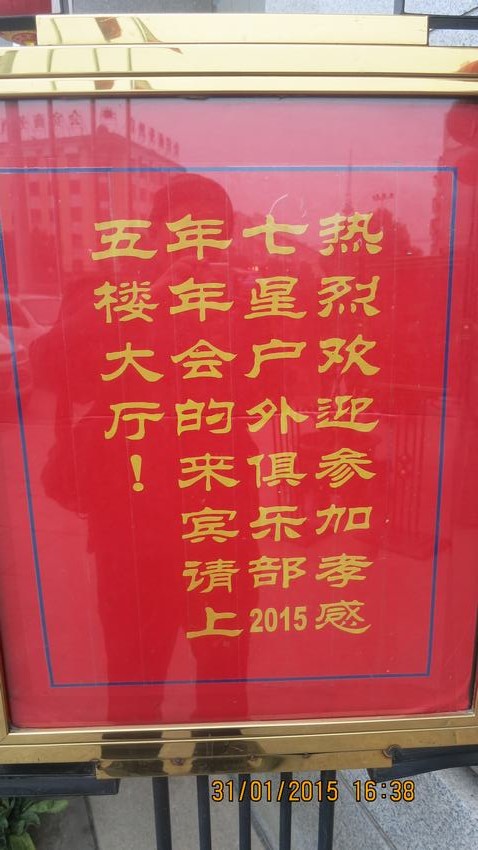 热烈欢迎参加孝感
七星户外俱乐部2015
年年会的来宾请上
五楼大厅！
31/01/2015 16:38